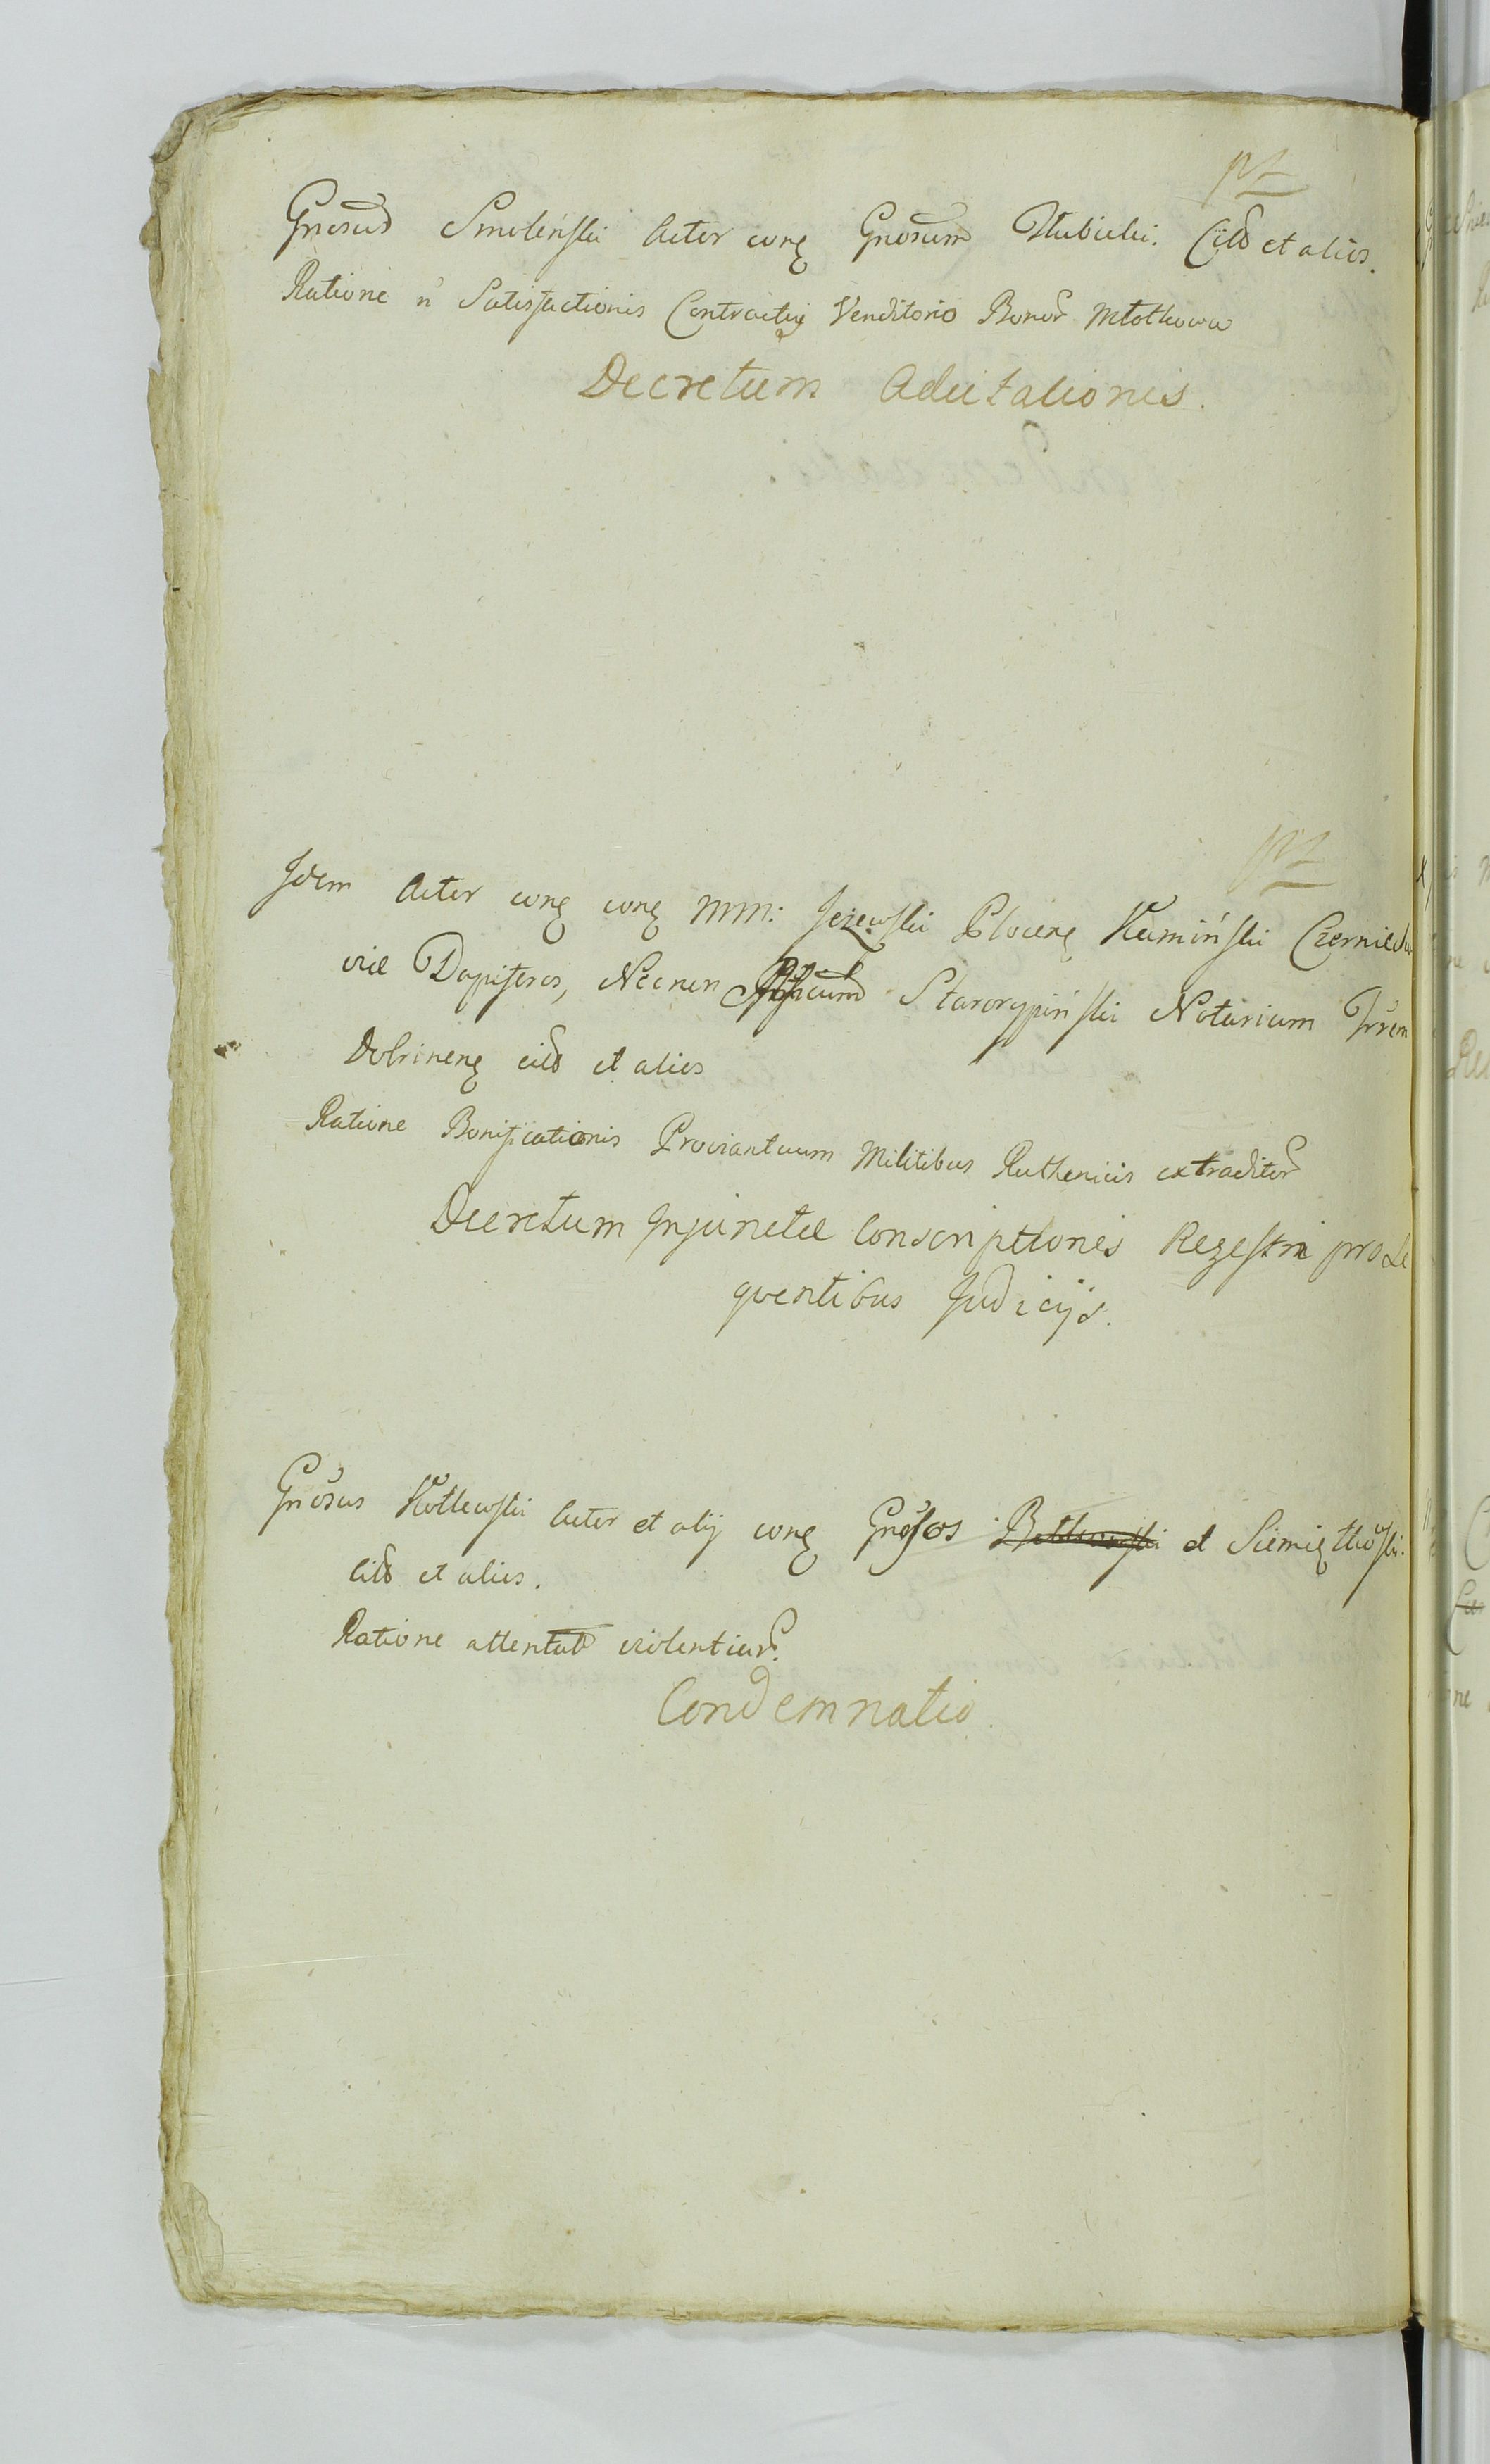 Gnosus Smoleński Actor conq Gnosum Hubicki. Citd et alios.
Ratione n Satisfactionis Contractus Venditorio Bonor Młotkowa
Decretum Adcitationis.
Idem Actor conq conq MM: Jeżewski Plocenq Kamiński Czerniecho
viæ Dapiferos, Necnon Starorypiński Notarium Trrem
Dobrinenq citd et alios
Ratione Bonificationis Proviantuum Militibus Ruthenicis extraditor
Decretum Injunctæ Conscriptionis Regestri pro Se
quentibus Judicijs.
Gnosus Kotlewski Actor et alij conq Gnosos et Siemiątkoski.
Citd et alios.
Ratione attentat violentiar.
Condemnatio.